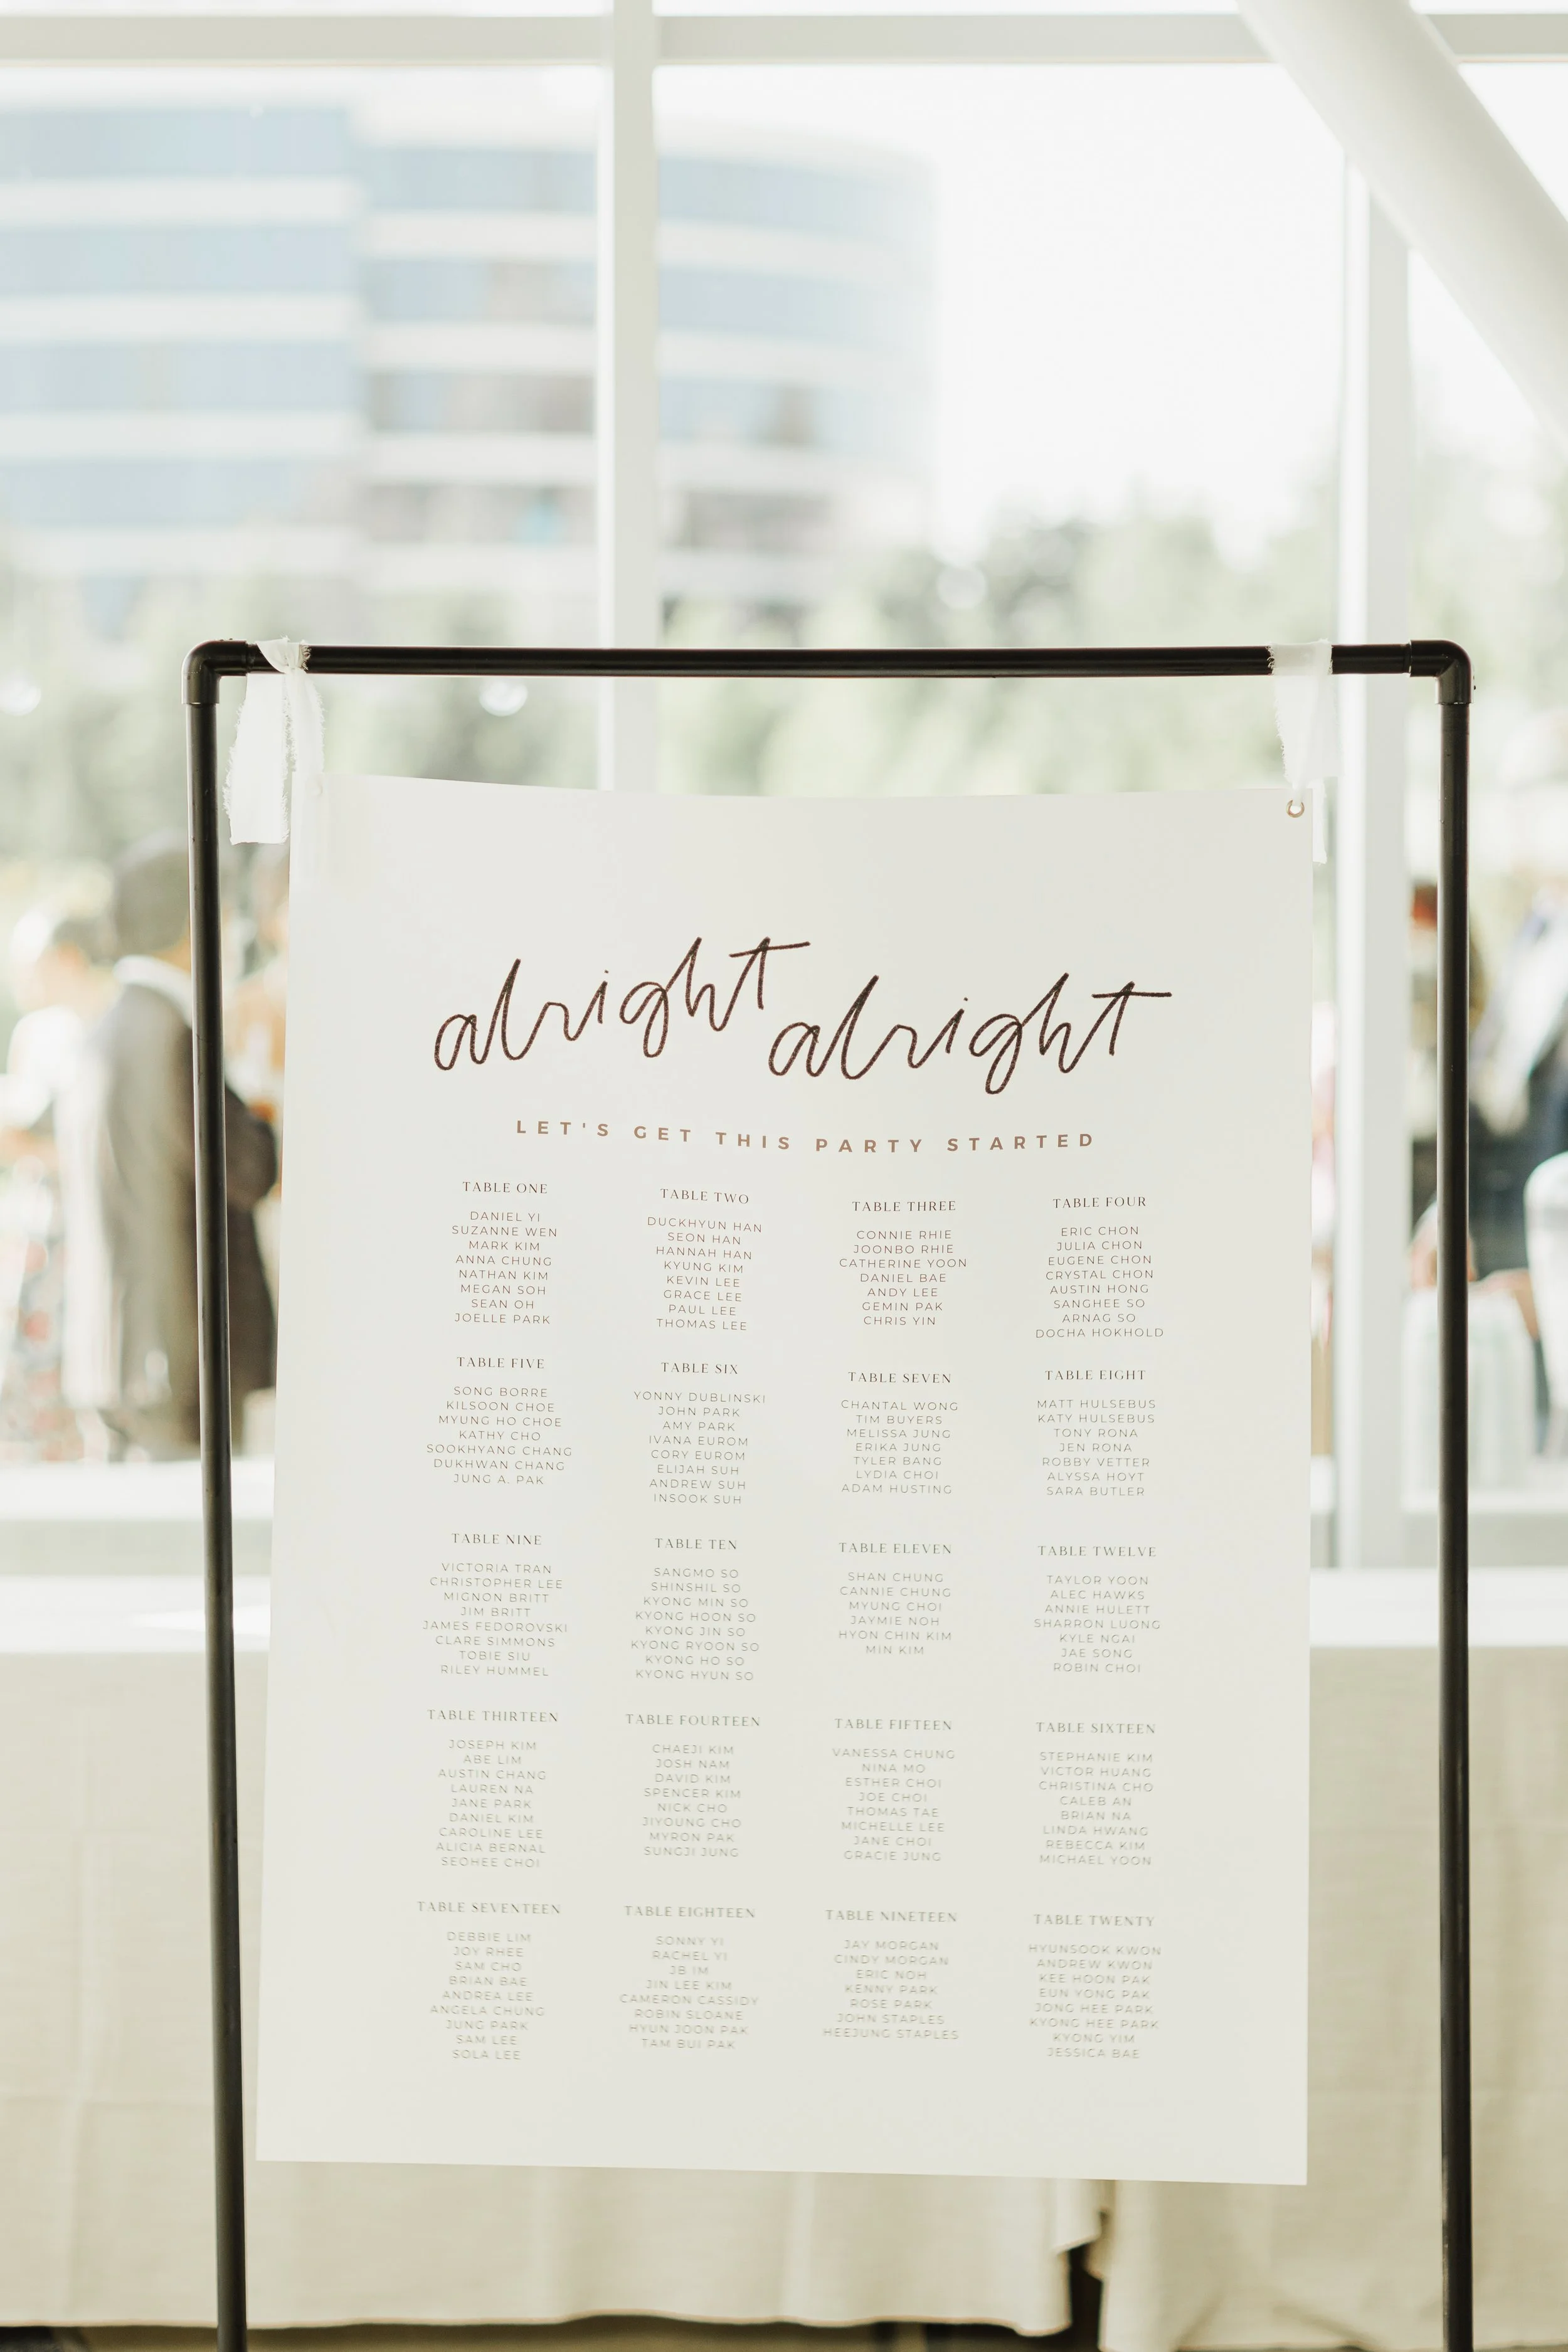 alright alright
LET'S GET THIS PARTY STARTED
TABLE ONE
DANIEL YI
SUZANNE WEN
MARK KIM
ANNA CHUNG
NATHAN KIM
MEGAN SOH
SEAN OH
JOELLE PARK
TABLE TWO
DUCKHYUN HAN
SEON HAN
HANNAH HAN
KYUNG KIM
KEVIN LEE
GRACE LEE
PAUL LEE
THOMAS LEE
TABLE THREE
CONNIE RHIE
JOONBO RHIE
CATHERINE YOON
DANIEL BAE
ANDY LEE
GEMIN PAK
CHRIS YIN
TABLE FOUR
ERIC CHON
JULIA CHON
EUGENE CHON
CRYSTAL CHON
AUSTIN HONG
SANGHEE SO
ARNAG SO
DOCHA HOKHOLD
TABLE FIVE
SONG BORRE
KILSOON CHOE
MYUNG HO CHOE
KATHY CHO
SOOKHYANG CHANG
DUKHWAN CHANG
JUNG A. PAK
TABLE SIX
YONNY DUBLINSKI
JOHN PARK
AMY PARK
IVANA EUROM
CORY EUROM
ELIJAH SUH
ANDREW SUH
INSOOK SUH
TABLE SEVEN
CHANTAL WONG
TIM BUYERS
MELISSA JUNG
ERIKA JUNG
TYLER BANG
LYDIA CHOI
ADAM HUSTING
TABLE EIGHT
MATT HULSEBUS
KATY HULSEBUS
TONY RONA
JEN RONA
ROBBY VETTER
ALYSSA HOYT
SARA BUTLER
TABLE NINE
VICTORIA TRAN
CHRISTOPHER LEE
MIGNON BRITT
JIM BRITT
JAMES FEDOROVSKI
CLARE SIMMONS
TOBIE SIU
RILEY HUMMEL
TABLE TEN
SANGMO SO
SHINSHIL SO
KYONG MIN SO
KYONG HOON SO
KYONG JIN SO
KYONG RYOON SO
KYONG HO SO
KYONG HYUN SO
TABLE ELEVEN
SHAN CHUNG
CANNIE CHUNG
MYUNG CHOI
JAYMIE NOH
HYON CHIN KIM
MIN KIM
TABLE TWELVE
TAYLOR YOON
ALEC HAWKS
ANNIE HULETT
SHARRON LUONG
KYLE NGAI
JAE SONG
ROBIN CHOI
TABLE THIRTEEN
JOSEPH KIM
ABE LIM
AUSTIN CHANG
LAUREN NA
JANE PARK
DANIEL KIM
CAROLINE LEE
ALICIA BERNAL
SEOHEE CHOI
TABLE FOURTEEN
CHAEJI KIM
JOSH NAM
DAVID KIM
SPENCER KIM
NICK CHO
JIYOUNG CHO
MYRON PAK
SUNGJI JUNG
TABLE FIFTEEN
VANESSA CHUNG
NINA MO
ESTHER CHOI
JOE CHOI
THOMAS TAE
MICHELLE LEE
JANE CHOI
GRACIE JUNG
TABLE SIXTEEN
STEPHANIE KIM
VICTOR HUANG
CHRISTINA CHO
CALEB AN
BRIAN NA
LINDA HWANG
REBECCA KIM
MICHAEL YOON
TABLE SEVENTEEN
DEBBIE LIM
JOY RHEE
SAM CHO
BRIAN BAE
ANDREA LEE
ANGELA CHUNG
JUNG PARK
SAM LEE
SOLA LEE
TABLE EIGHTEEN
SONNY YI
RACHEL YI
JB IM
JIN LEE KIM
CAMERON CASSIDY
ROBIN SLOANE
HYUN JOON PAK
TAM BUI PAK
TABLE NINETEEN
JAY MORGAN
CINDY MORGAN
ERIC NOH
KENNY PARK
ROSE PARK
JOHN STAPLES
HEEJUNG STAPLES
TABLE TWENTY
HYUNSOOK KWON
ANDREW KWON
KEE HOON PAK
EUN YONG PAK
JONG HEE PARK
KYONG HEE PARK
KYONG YIM
JESSICA BAE